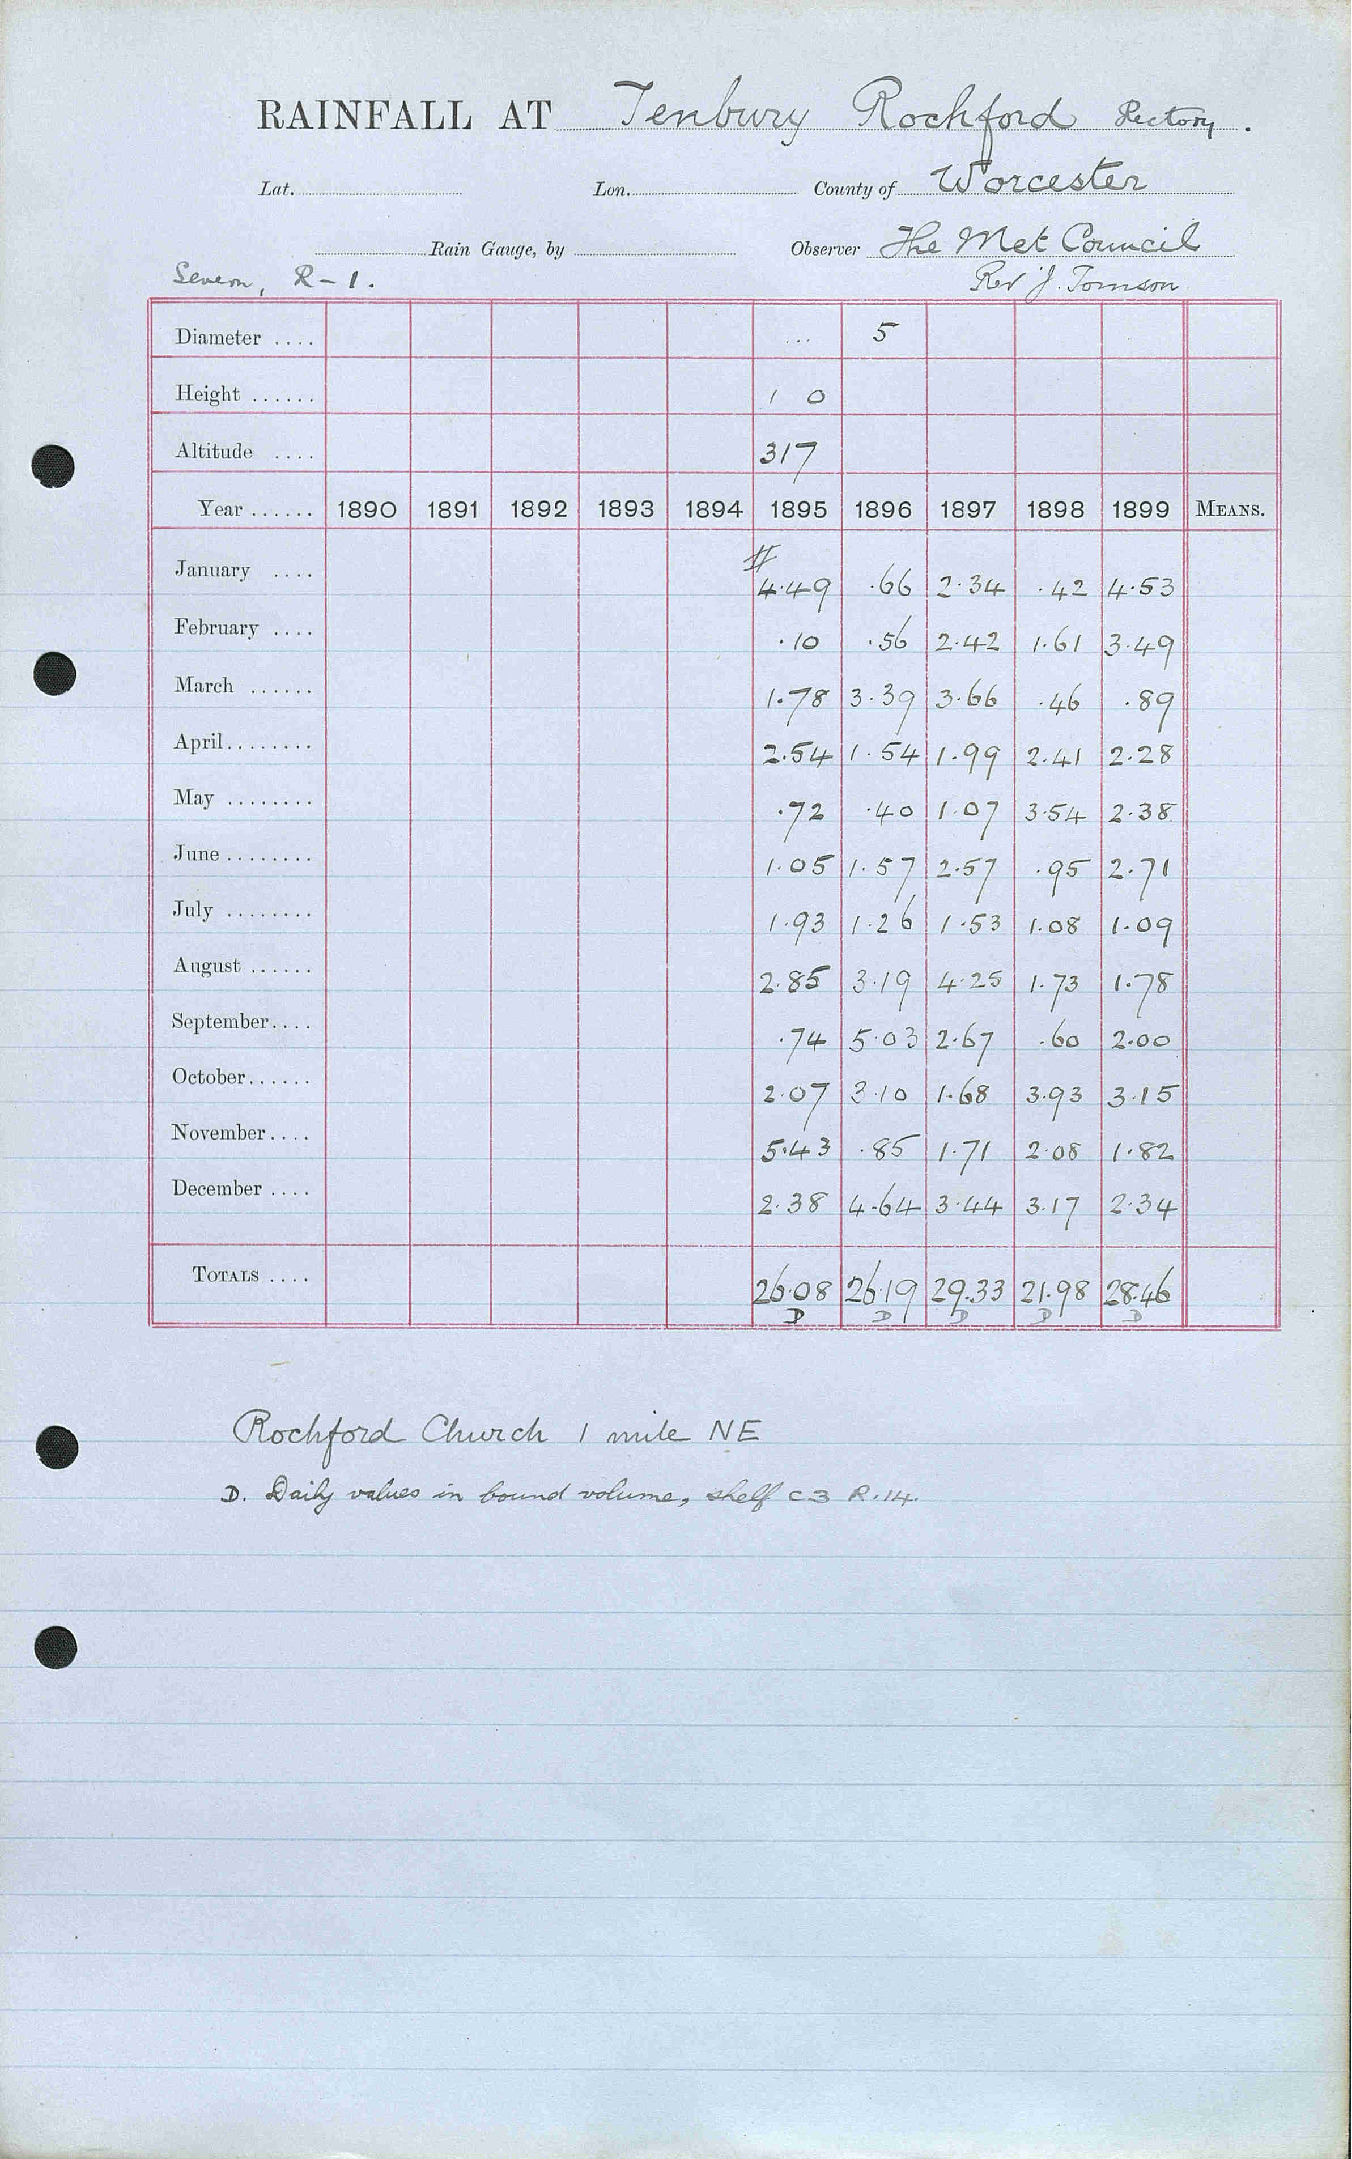 RAINFALL AT Tenbury Rochford Rectory.
Lat. Lon. County of Worcester
Rain Gauge, by Observer The Met Council
Severn, R - 1. Rev J. Tomson
Diameter .... ... 5
Height ...... 1 0
Altitude .... 317
Year ...... 1890 1891 1892 1893 1894 1895 1896 1897 1898 1899 MEANS.
#
January .... 4.49 .66 2.34 .42 4.53
February .... .10 .56 2.42 1.61 3.49
March ...... 1.78 3.39 3.66 .46 .89
April........ 2.54 1.54 1.99 2.41 2.28
May ........ .72 .40 1.07 3.54 2.38
June ........ 1.05 1.57 2.57 .95 2.71
July ........ 1.93 1.26 1.53 1.08 1.09
August ...... 2.85 3.19 4.25 1.73 1.78
September.... .74 5.03 2.67 .60 2.00
October...... 2.07 3.10 1.68 3.93 3.15
November.... 5.43 .85 1.71 2.08 1.82
December .... 2.38 4.64 3.44 3.17 2.34
TOTALS .... 26.08 26.19 29.33 21.98 28.46
D D D D D
Rochford Church 1 mile NE
D. Daily values in bound volume, shelf C3 R.14.